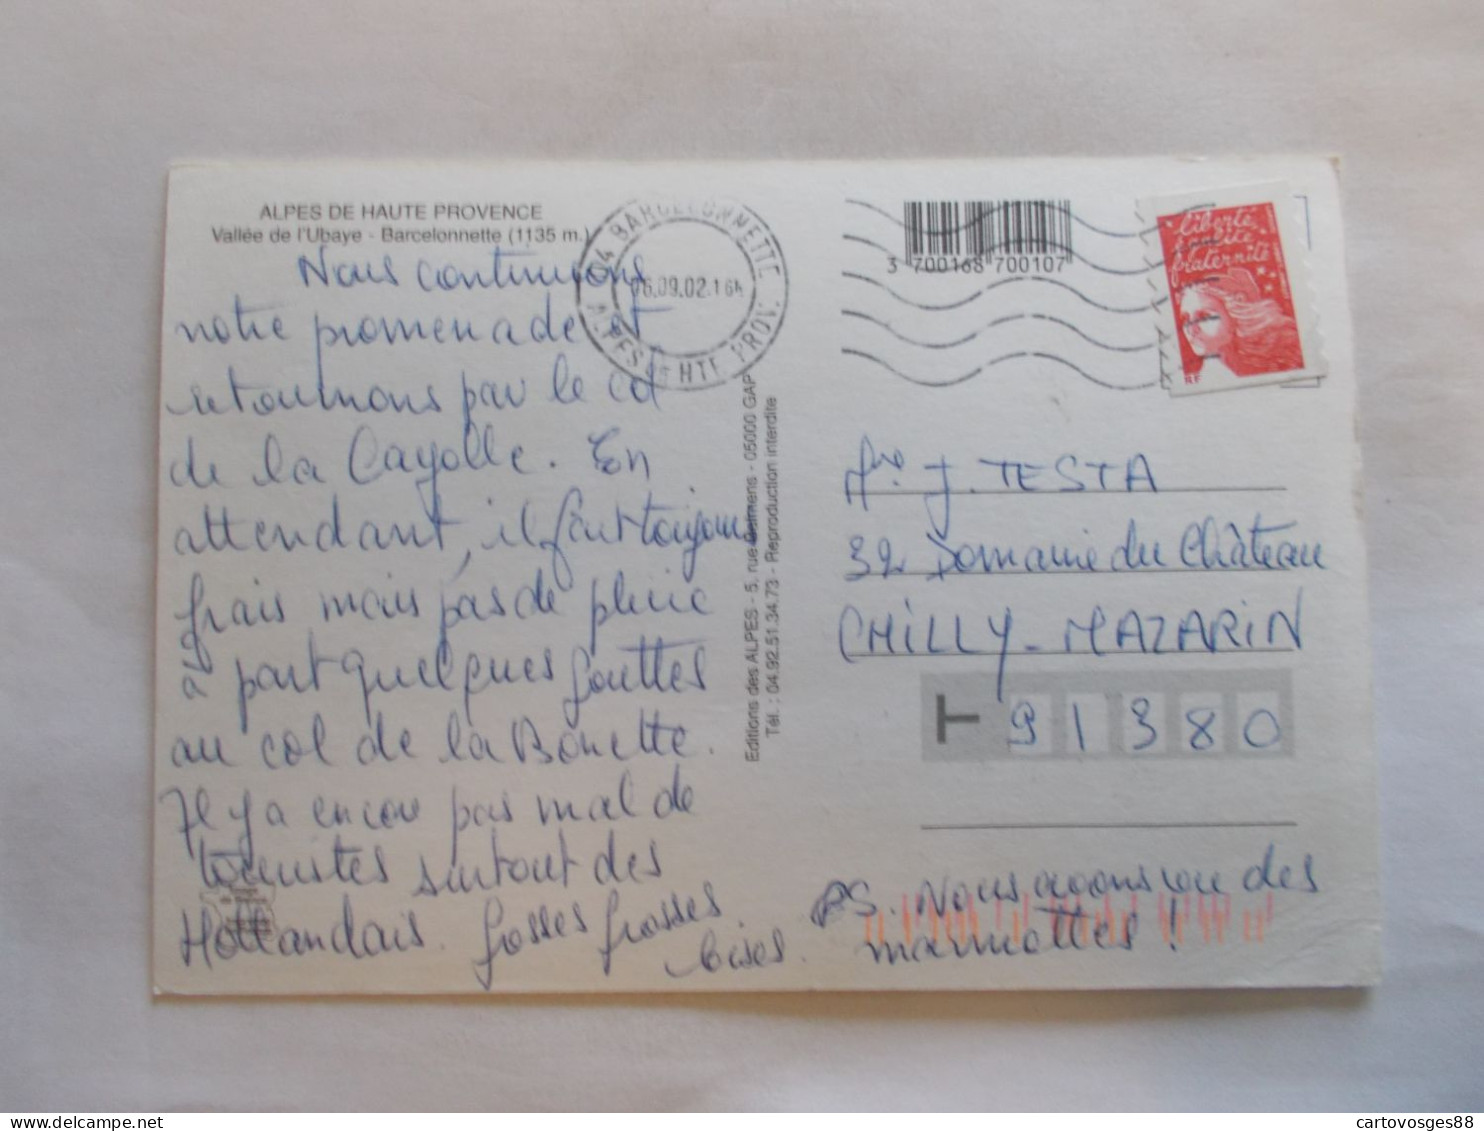 ALPES DE HAUTE PROVENCE
Vallée de l'Ubaye - Barcelonnette (1135 m.)
Nous continuons
notre promenade et
retournons par le col
de la Cayolle. En
attendant, il fait toujours
frais mais pas de pluie
à part quelques gouttes
au col de la Bonette.
Il y a encore pas mal de
touristes surtout des
Hollandais. Grosses grosses
bises.
04 BARCELONNETTE
06.09.02.16H
ALPES DE HTE PROV.
Editions des ALPES - 5, rue - 05000 GAP
Tél. : 04.92.51.34.73 - Reproduction interdite
3 700168 700107
liberté
égalité
fraternité
RF
J. TESTA
32 Domaine du Château
CHILLY-MAZARIN
91380
PS. Nous avons vu des
marmottes !
delcampe.net
cartovosges88